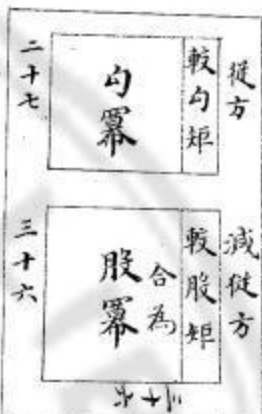 從方
較勾矩
勾冪
二十七
減從方
較股矩
合為
股冪
三十六